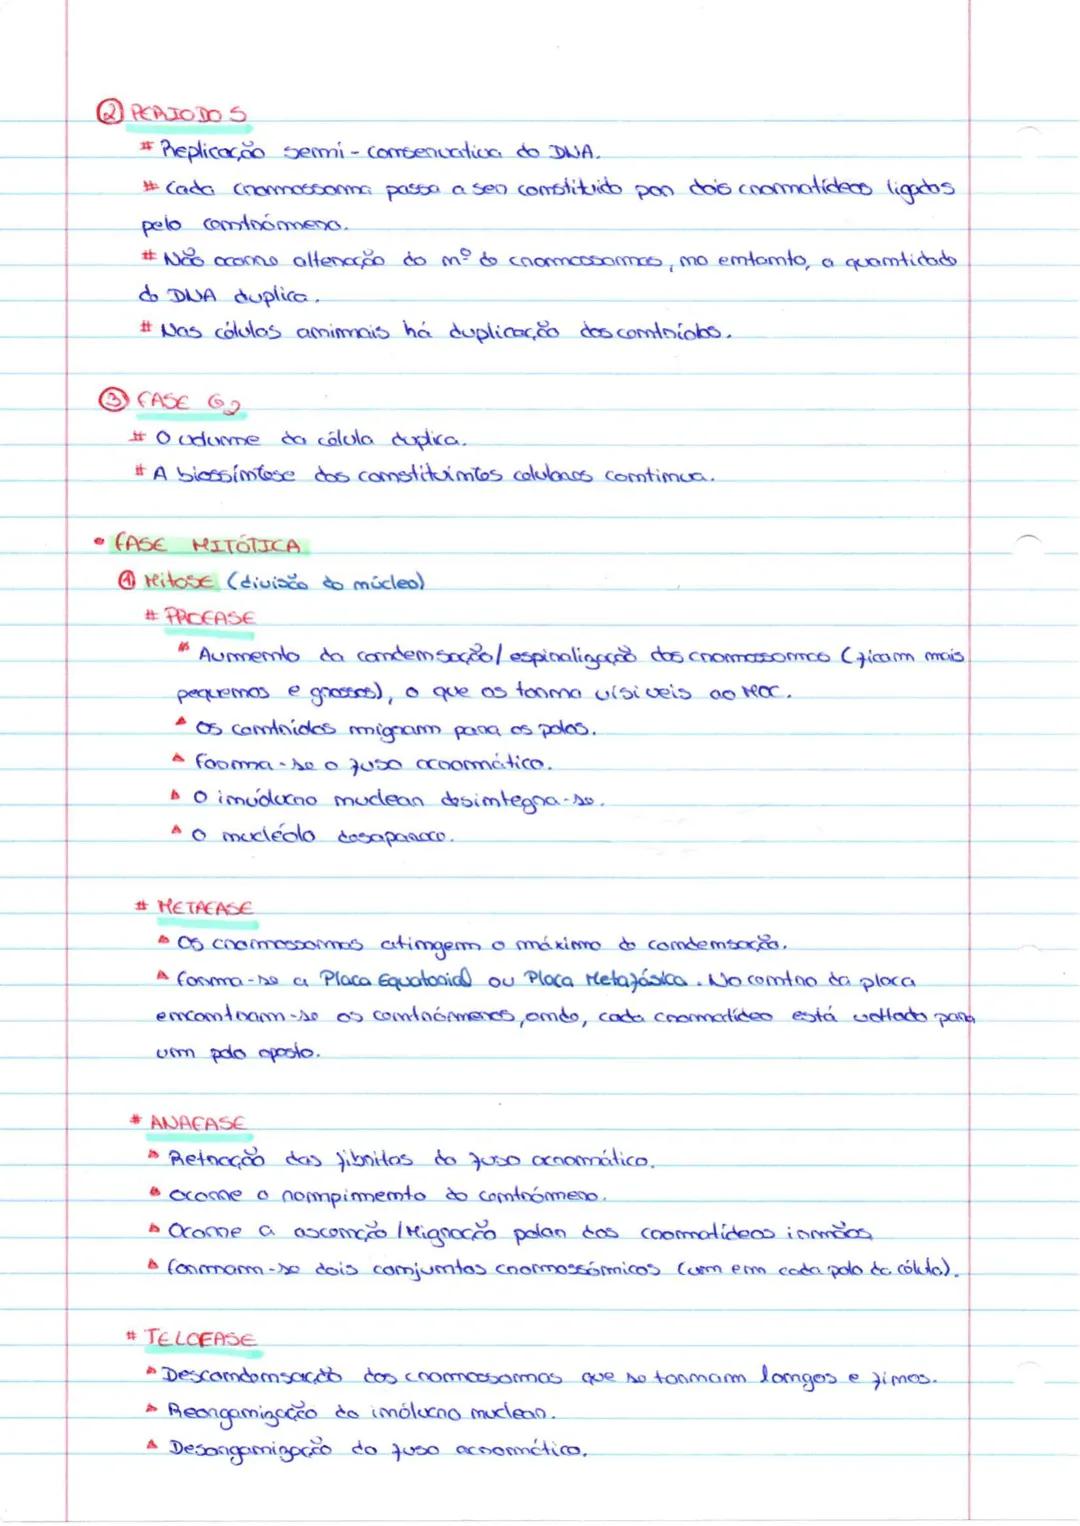 ② PERIODO S
# Replicação semi-conservativa do DNA.
# Cada cromossoma passa a ser constituído por dois cromatídeos ligados
pelo centrómero.
# Não ocorre alteração do nº de cromossomas, no entanto, a quantidade
de DNA duplica.
# Nas células animais há duplicação dos centríolos.
③ FASE G2
# O volume da célula duplica.
# A biossíntese dos constituintes celulares continua.
• FASE MITÓTICA
① Mitose (divisão do núcleo)
# PROFASE
Aumento da condensação/espiralização dos cromossomas (ficam mais
pequenos e grossos), o que os torna visíveis ao MOC.
Os centríolos migram para os polos.
Forma-se o fuso acromático.
O invólucro nuclear desintegra-se.
O nucléolo desaparece.
# METAFASE
Os cromossomas atingem o máximo de condensação.
Forma-se a Placa Equatorial ou Placa Metafásica. No centro da placa
encontram-se os centrómeros, onde, cada cromatídeo está voltado para
um polo oposto.
# ANAFASE
Retração das fibrilas do fuso acromático.
Ocorre o rompimento do centrómero.
Ocorre a ascenção/Migração polar dos cromatídeos irmãos
Formam-se dois conjuntos cromossómicos (um em cada polo da célula).
# TELOFASE
Descondensação dos cromossomas que se tornam longos e finos.
Reorganização do invólucro nuclear.
Desorganização do fuso acromático.